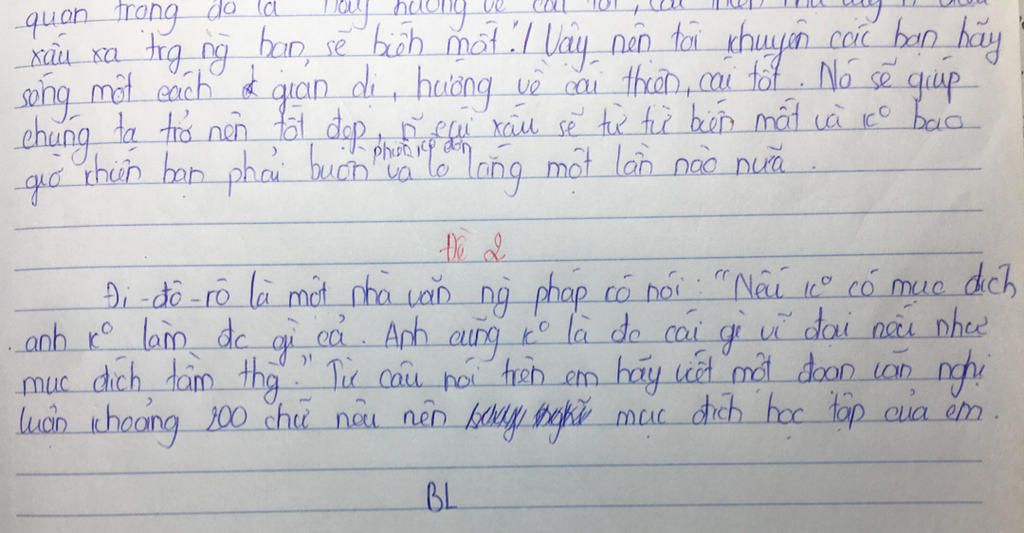 quan trọng đó là hãy hướng về cái tốt, cái
xấu xa trg ng bạn, sẽ biến mất." Vậy nên tôi khuyên các bạn hãy
sống một cách giản dị, hướng về cái thiện, cái tốt. Nó sẽ giúp
chúng ta trở nên tốt đẹp, n~ cái xấu sẽ từ từ biến mất và k° bao
phiền
giờ khiến bạn phải buồn và lo lắng một lần nào nữa.
Đề 2
Đi-đô-rô là một nhà văn ng pháp có nói: "Nếu k° có mục đích
anh k° làm đc gì cả. Anh cũng k° là đc cái gì vĩ đại nếu như
mục đích tầm thg." Từ câu nói trên em hãy viết một đoạn văn nghị
luận khoảng 200 chữ nêu nên mục đích học tập của em.
BL